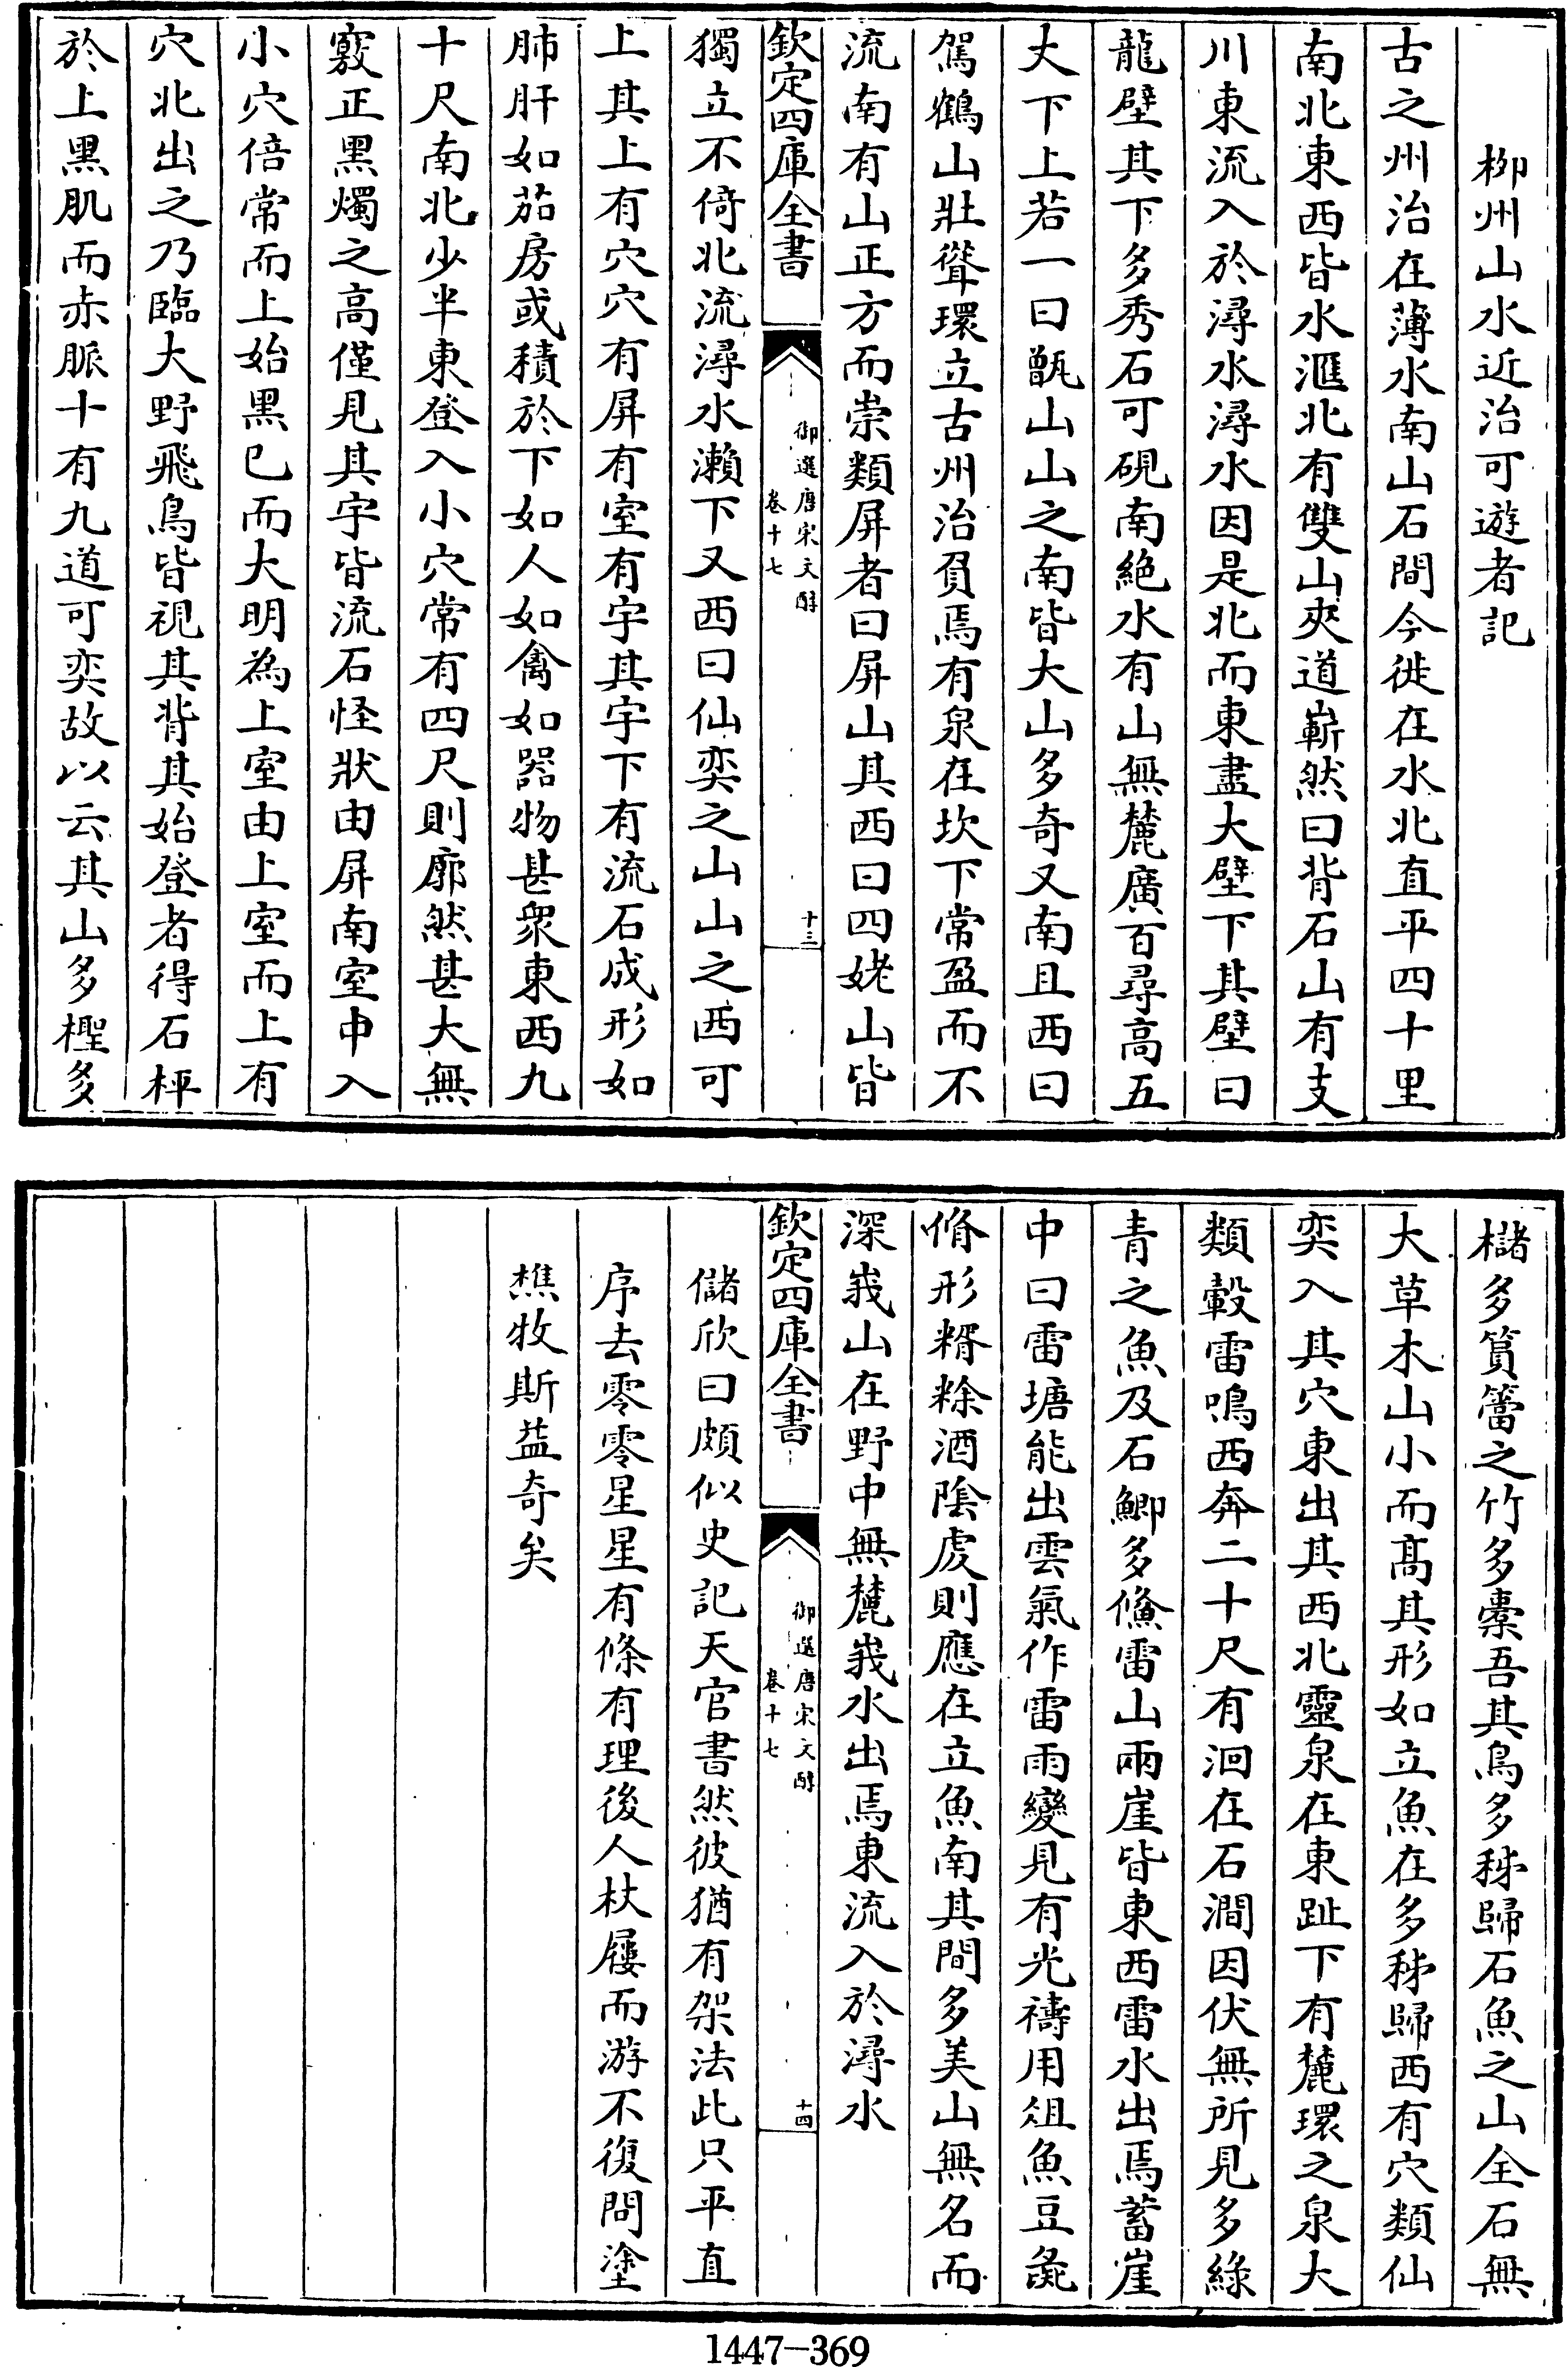 柳州山水近治可遊者記
古之州治在薄水南山石間今徙在水北直平四十里
南北東西皆水滙北有雙山夾道嶄然曰背石山有支
川東流入於潯水潯水因是北而東盡大壁下其壁曰
龍壁其下多秀石可硯南絶水有山無麓廣百尋髙五
丈下上若一曰甑山山之南皆大山多奇又南且西曰
駕鶴山壯聳環立古州治負焉有泉在坎下常盈而不
流南有山正方而崇類屏者曰屏山其西曰四姥山皆
欽定四庫全書
御選唐宋文醇
卷十七
十三
獨立不倚北流潯水瀨下又西曰仙奕之山山之西可
上其上有穴穴有屏有室有宇其宇下有流石成形如
肺肝如茄房或積於下如人如禽如器物甚衆東西九
十尺南北少半東登入小穴常有四尺則廓然甚大無
竅正黑燭之高僅見其宇皆流石怪狀由屏南室中入
小穴倍常而上始黑已而大明為上室由上室而上有
穴北出之乃臨大野飛鳥皆視其背其始登者得石枰
於上黑肌而赤脈十有九道可奕故以云其山多檉多
櫧多篔簹之竹多櫜吾其鳥多秭歸石魚之山全石無
大草木山小而髙其形如立魚在多秭歸西有穴類仙
奕入其穴東出其西北靈泉在東趾下有麓環之泉大
類轂雷鳴西奔二十尺有洄在石澗因伏無所見多綠
青之魚及石鯽多鯈雷山兩崖皆東西雷水出焉蓄崖
中曰雷塘能出雲氣作雷雨變見有光禱用俎魚豆彘
脩形糈稌酒陰䖍則應在立魚南其間多美山無名而
深峩山在野中無麓峩水出焉東流入於潯水
欽定四庫全書
御選唐宋文醇
卷十七
十四
儲欣曰頗似史記天官書然彼猶有架法此只平直
序去零零星星有條有理後人杖屨而游不復問塗
樵牧斯益奇矣
1447-369